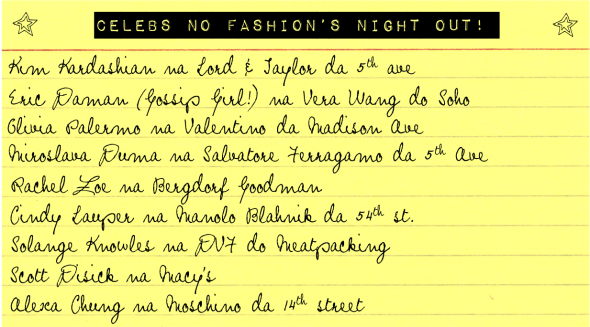 CELEBS NO FASHION'S NIGHT OUT!
Kim Kardashian na Lord & Taylor da 5th ave
Eric Daman (Gossip Girl!) na Vera Wang do Soho
Olivia Palermo na Valentino da Madison Ave
Miroslava Duma na Salvatore Ferragamo da 5th Ave
Rachel Zoe na Bergdorf Goodman
Cindy Lauper na Manolo Blahnik da 54th st.
Solange Knowles na DVF do Meatpacking
Scott Disick na Macy's
Alexa Chung na Moschino da 14th street